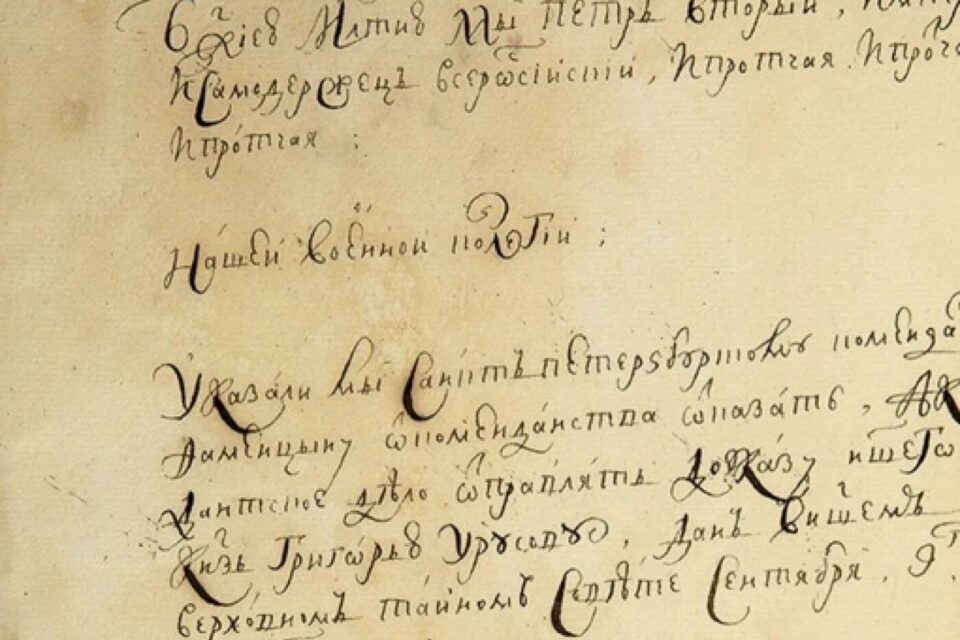 Бжїею Млтию Мы Петръ Вторый,
И Самодержецъ всерѡсїискїи, И протчая И проч
И протчая :
Нашей военной колегїи :
Указали мы Санктъ петерѕбургскому коменда
Фаминцыну ѿ комендантства ѿказать,
дантское дѣло ѿправлять до ꙋказу ншегѡ
Кнзь Григорью Урусову, Данъ внашемъ
верховномъ таином Совѣте Сентября, 9,